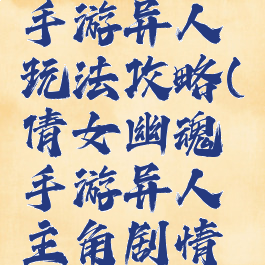 手游异人
玩法攻略(
倩女幽魂
手游异人
主角剧情